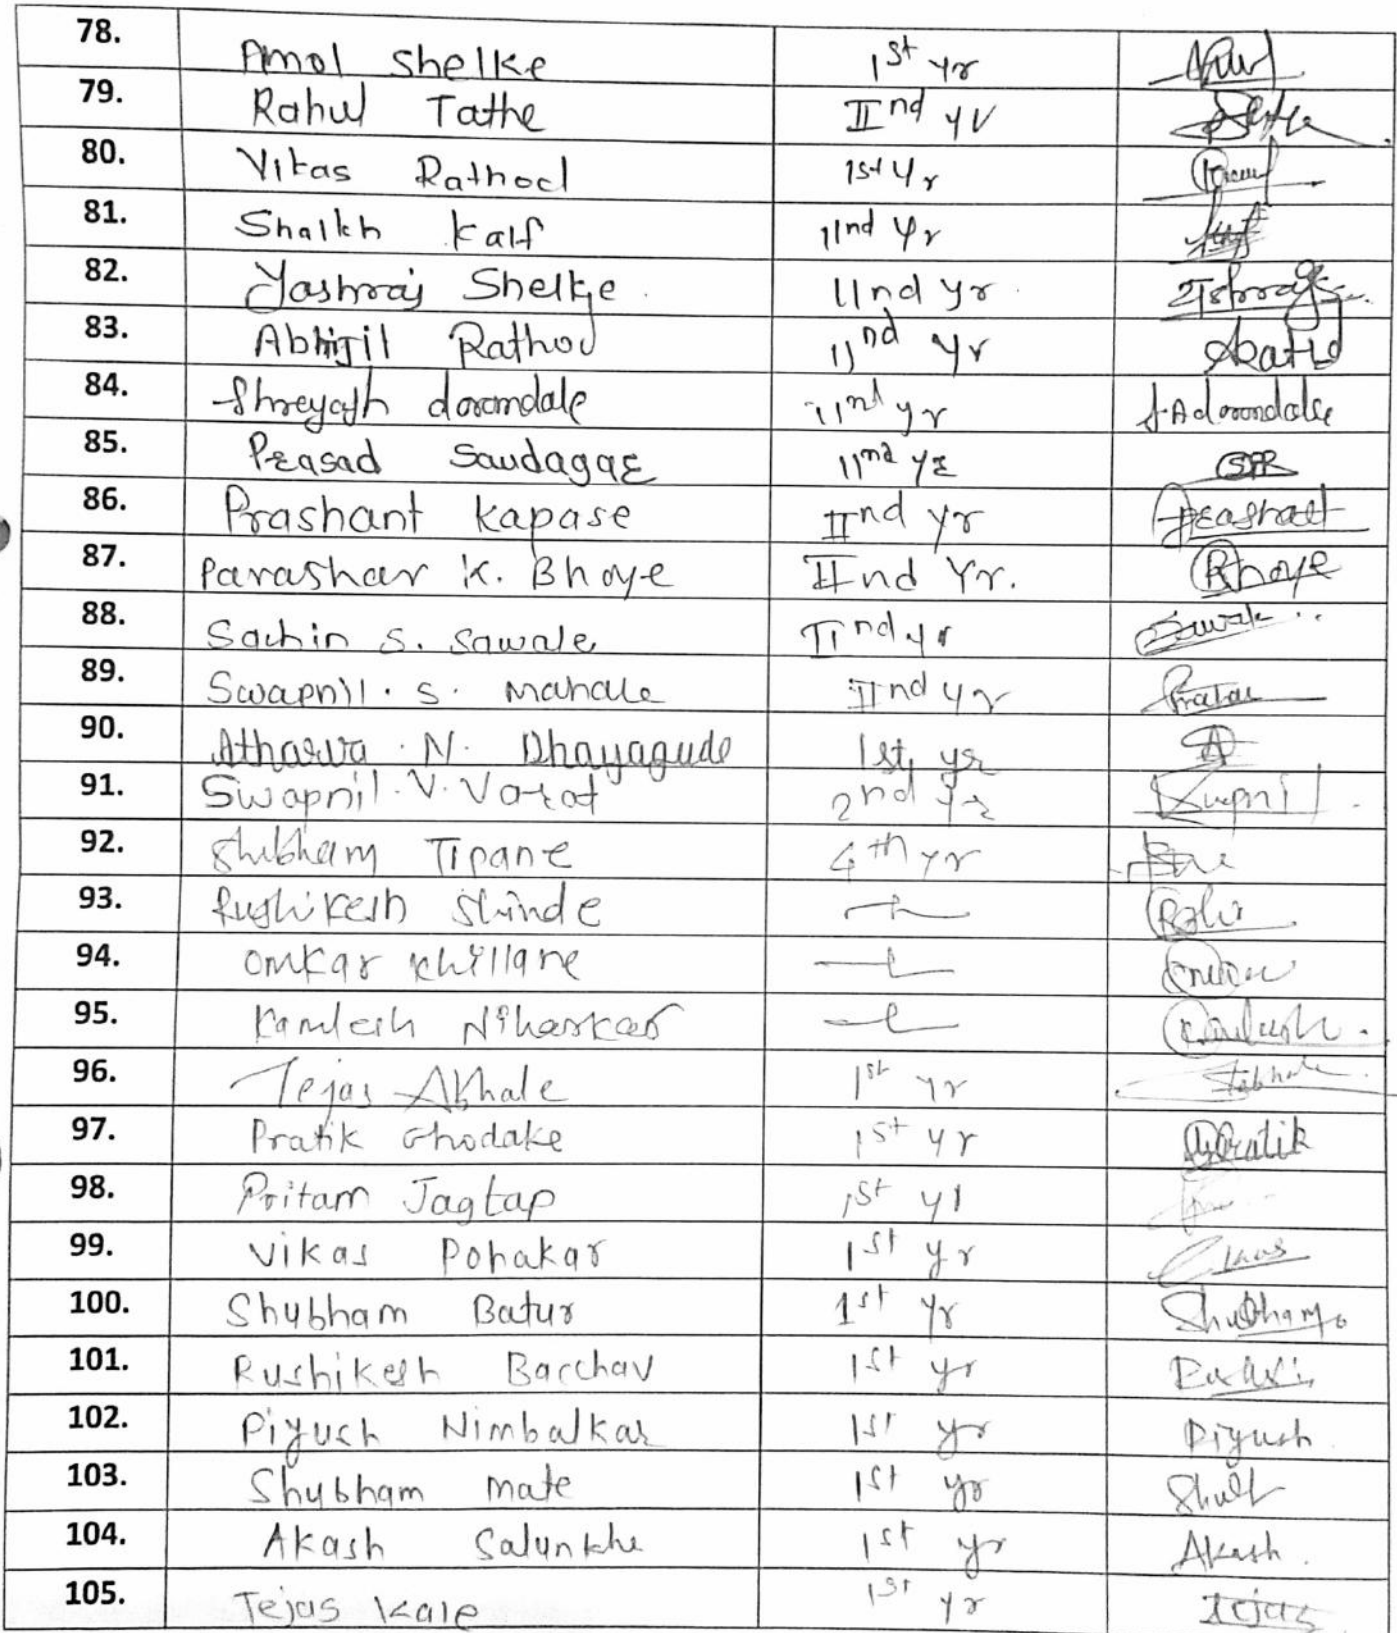 78. Amol Shelke 1st yr
79. Rahul Tathe IInd yr
80. Vikas Rathod 1st Yr
81. Shaikh Kaif IInd Yr
82. Yashraj Shelke. IInd yr.
83. Abhijit Rathod IInd yr
84. Shreyash darandale IInd yr J.A darandale
85. Prasad Saudagar IInd yr SPR
86. Prashant Kapase IInd yr Prashant
87. Parashar K. Bhoye IInd Yr. Bhoye
88. Sachin S. Sawale IInd yr Sawale
89. Swapnil. S. Mahale IInd yr
90. Atharva. N. Dhayagude 1st yr A
91. Swapnil. V. Varat 2nd yr Swapnil
92. Shubham Tipane 4th yr
93. Rushikesh Shinde
94. Omkar Khillare
95. Kamlesh Niharkar Kamlesh.
96. Tejas Abhale 1st yr
97. Pratik Ghodake 1st yr Pratik
98. Pritam Jagtap 1st yr
99. Vikas Pohakar 1st yr
100. Shubham Batur 1st yr Shubham
101. Rushikesh Bacchav 1st yr
102. Piyush Nimbalkar 1st yr Piyush
103. Shubham Mate 1st yr Shubh
104. Akash Salunkhe 1st yr Akash.
105. Tejas Kale 1st yr Tejas